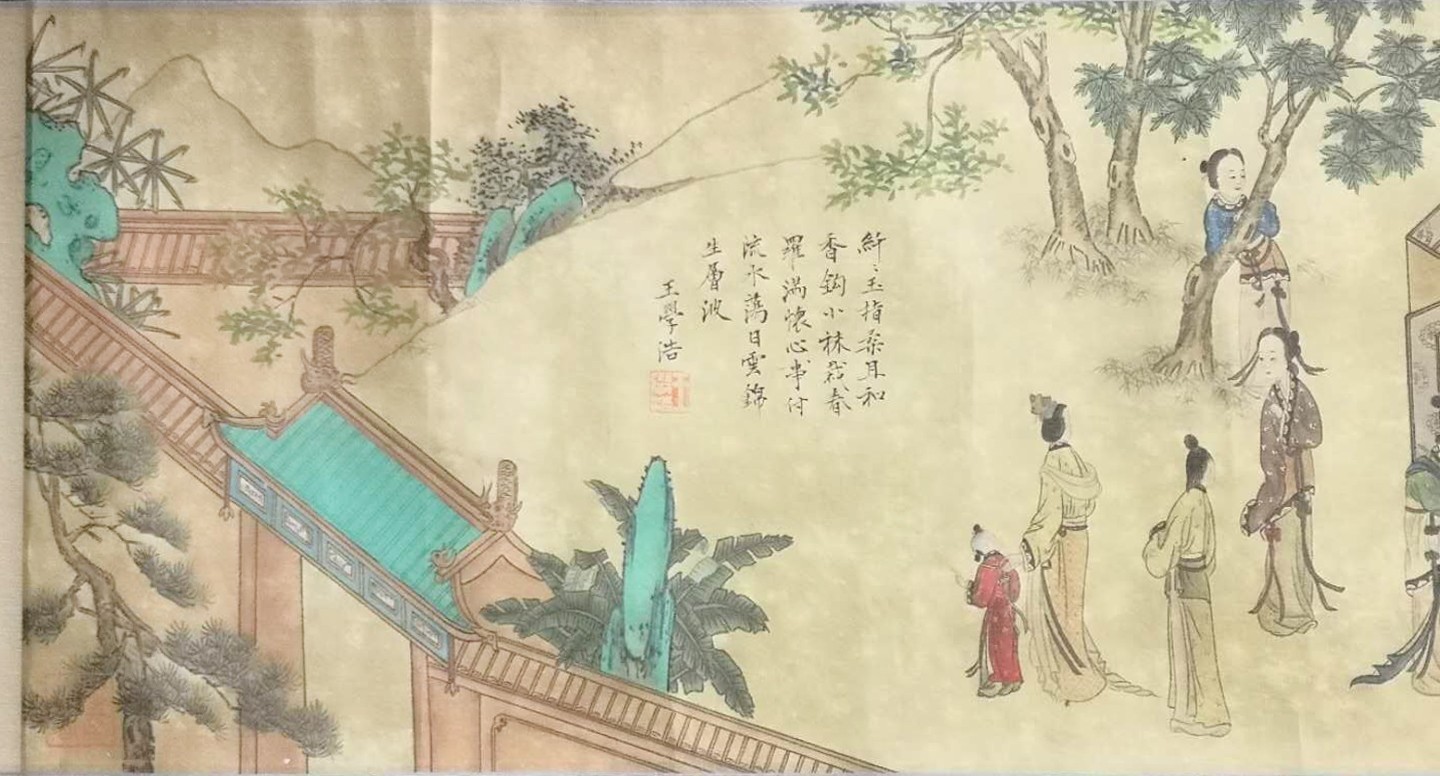 纤〻玉指柔且和
香鈎小袜裁春
羅滿懷心事付
流水蕩日雲錦
生層波
王學浩